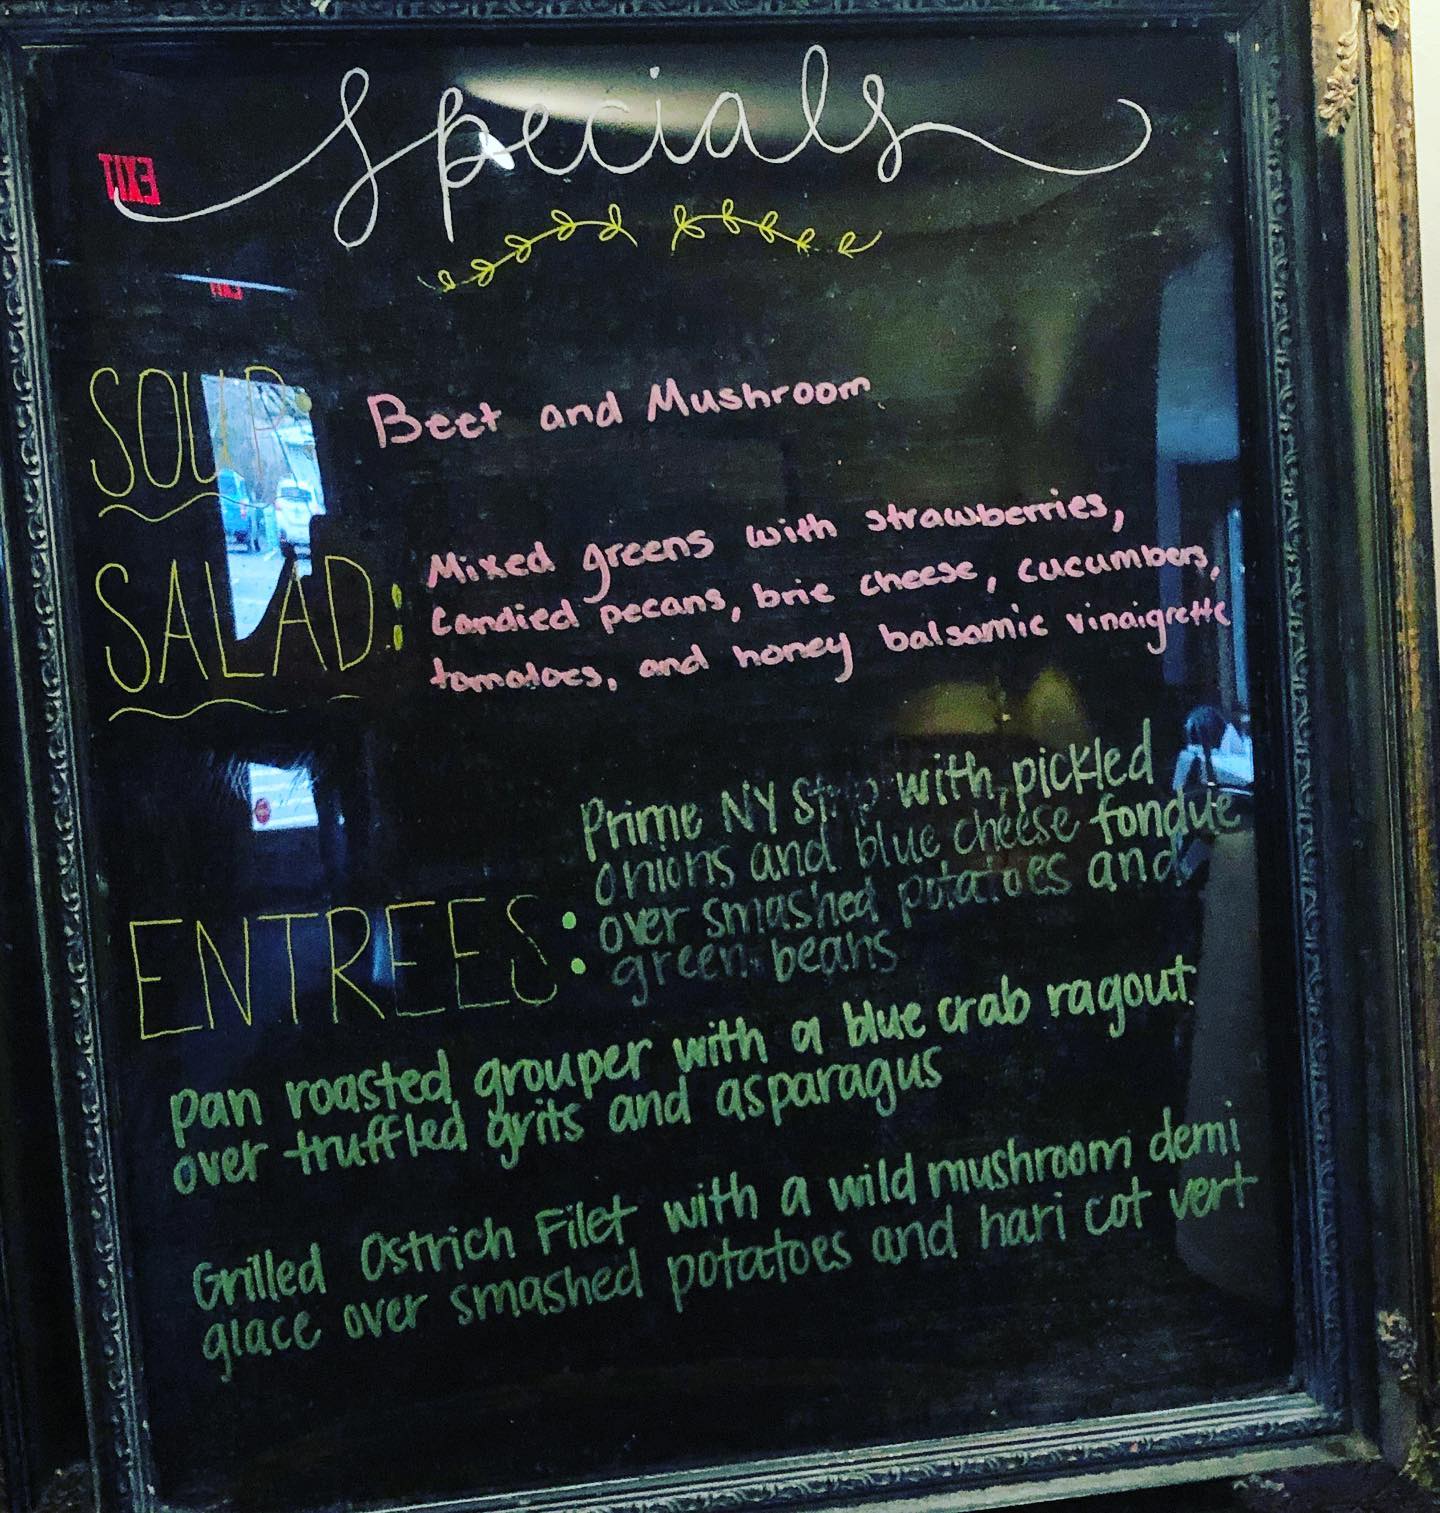 Specials
EXIT
EXIT
SOUP:
Beet and Mushroom
SALAD:
Mixed greens with strawberries,
Candied pecans, brie cheese, cucumbers,
tomatoes, and honey balsamic vinaigrette
ENTREES:
Prime NY Strip with pickled
onions and blue cheese fondue
over smashed potatoes and
green beans
pan roasted grouper with a blue crab ragout
over truffled grits and asparagus
Grilled Ostrich Filet with a wild mushroom demi
glace over smashed potatoes and hari cot vert